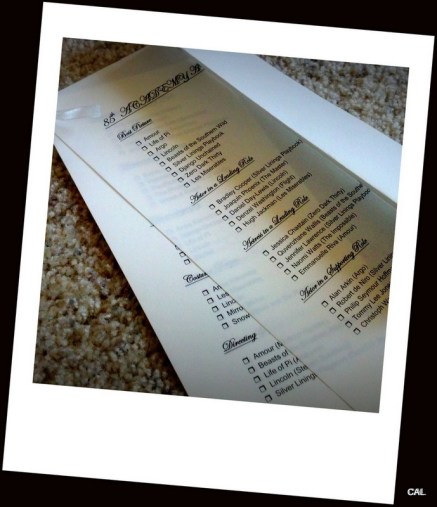 85 ACADEMY A
Best Picture
Amour
Life of Pi
Argo
Lincoln
Beasts of the Southern Wild
Silver Linings Playbook
Django Unchained
Zero Dark Thirty
Les Miserables
Actor in a Leading Role
Bradley Cooper (Silver Linings Playbook)
Joaquin Phoenix (The Master)
Daniel Day-Lewis (Lincoln)
Denzel Washington (Flight)
Hugh Jackman (Les Miserables)
Actress in a Leading Role
Jessica Chastain (Zero Dark Thirty)
Quvenzhane Wallis (Beasts of the Southe
Jennifer Lawrence (Silver Linings Playboo
Naomi Watts (The Impossible)
Emmanuelle Riva (Amour)
Actor in a Supporting Role
Alan Arkin (Argo)
Robert de Niro (Silver Linin
Philip Seymour Hoffm
Tommy Lee
Christoph W
Costu
Linc
Mirro
Snow
Directing
Amour (M
Beasts of
Life of Pi (A
Lincoln (Ste
Silver Lining
CAL